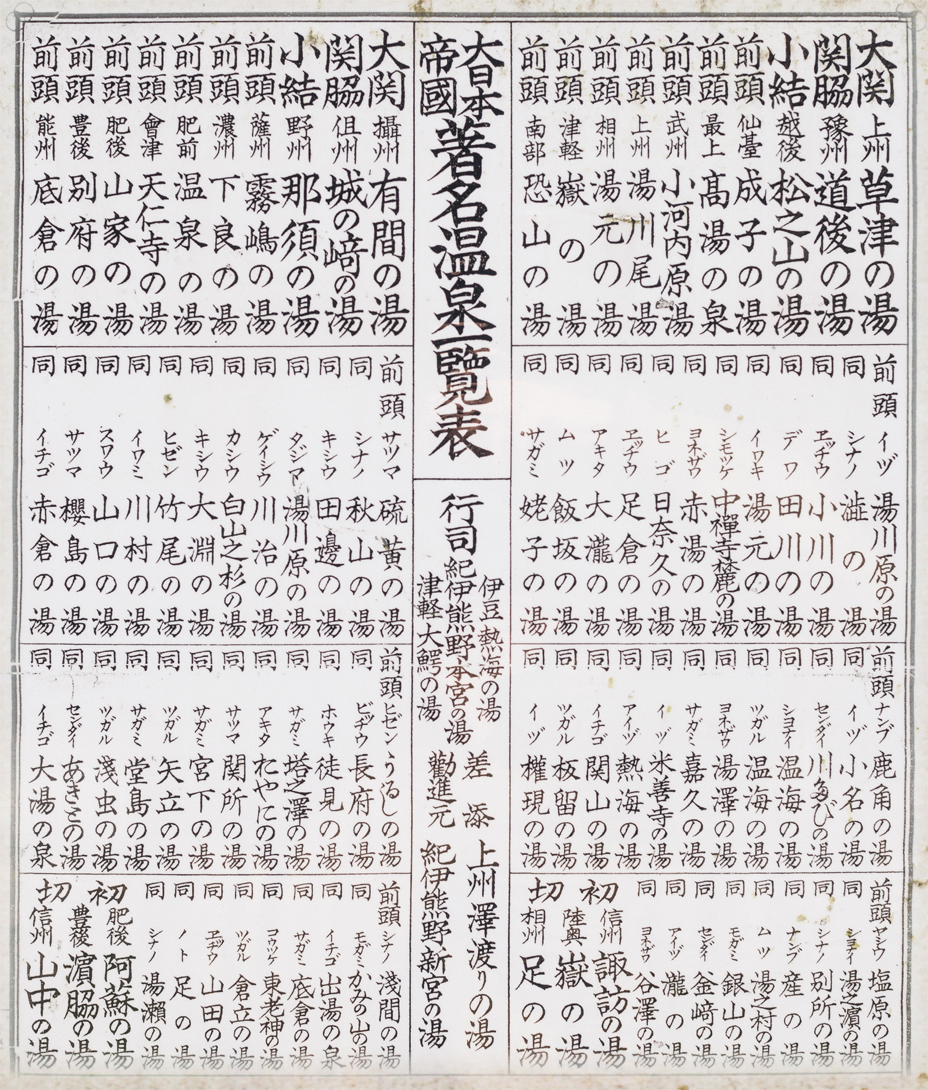 大日本
帝國
著名温泉一覧表
大関 上州 草津の湯
関脇 豫州 道後の湯
小結 越後 松之山の湯
前頭 仙臺 成子の湯
前頭 最上 高湯の泉
前頭 武州 小河内原湯
前頭 上州 湯川尾湯
前頭 相州 湯元の湯
前頭 津軽 嶽の湯
前頭 南部 恐山の湯
大関 攝州 有間の湯
関脇 但州 城の﨑の湯
小結 野州 那須の湯
前頭 薩州 霧嶋の湯
前頭 濃州 下良の湯
前頭 肥前 温泉の湯
前頭 會津 天仁寺の湯
前頭 肥後 山家の湯
前頭 豊後 別府の湯
前頭 能州 底倉の湯
前頭 イヅ 湯川原の湯
同 シナノ 澁の湯
同 ヱッチウ 小川の湯
同 デワ 田川の湯
同 イワキ 湯元の湯
同 シモツケ 中禪寺麓の湯
同 ヨネザワ 赤湯の湯
同 ヒゴ 日奈久の湯
同 ヱッチウ 足倉の湯
同 アキタ 大瀧の湯
同 ムツ 飯坂の湯
同 サガミ 姥子の湯
前頭 サツマ 硫黄の湯
同 シナノ 秋山の湯
同 キシウ 田邊の湯
同 タジマ 湯川原の湯
同 ゲイシウ 川治の湯
同 カシウ 白山之杉の湯
同 キシウ 大淵の湯
同 ヒゼン 竹尾の湯
同 イワミ 川村の湯
同 スワウ 山口の湯
同 サツマ 櫻島の湯
同 イチゴ 赤倉の湯
行司
伊豆熱海の湯
紀伊熊野本宮の湯
津軽大鰐の湯
差添
勸進元
上州澤渡りの湯
紀伊熊野新宮の湯
前頭 ナンブ 鹿角の湯
同 イヅ 小名の湯
同 センダイ 川たびの湯
同 シヨナイ 温海の湯
同 ツガル 温海の湯
同 ヨネザワ 湯澤の湯
同 サガミ 嘉久の湯
同 イヅ 米善寺の湯
同 アイヅ 熱海の湯
同 イチゴ 関山の湯
同 ツガル 板留の湯
同 イヅ 權現の湯
前頭 ヒゼン うるしの湯
同 ビッチウ 長府の湯
同 ホウキ 徒見の湯
同 サガミ 塔之澤の湯
同 アキタ たやにの湯
同 サツマ 関所の湯
同 サガミ 宮下の湯
同 ツガル 矢立の湯
同 サガミ 堂島の湯
同 ツガル 淺虫の湯
同 センダイ あきとの湯
同 イチゴ 大湯の泉
前頭 ヤシウ 塩原の湯
同 シヨナイ 湯之濱の湯
同 シナノ 別所の湯
同 ナンブ 産の湯
同 ムツ 湯之村の湯
同 モガミ 銀山の湯
同 センダイ 釜﨑の湯
同 アイヅ 瀧の湯
同 ヨネザワ 谷澤の湯
初 信州 諏訪の湯
陸奥 嶽の湯
切 相州 足の湯
前頭 シナノ 淺間の湯
同 モガミ かみの山の湯
同 イチゴ 出湯の泉
同 サガミ 底倉の湯
同 コウツケ 東老神の湯
同 ツガル 倉立の湯
同 ヱヂウ 山田の湯
同 ノト 足の湯
同 シナノ 湯瀬の湯
初 肥後 阿蘇の湯
豊後 濱脇の湯
切 信州 山中の湯